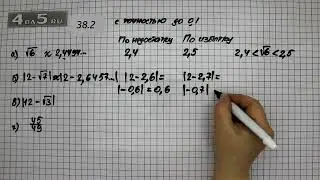 4PDA5.RU 38.2 с точностью до 0,1
По недостатку По избытку
а) √6 ≈ 2,4494... 2,4 2,5 2,4 < √6 < 2,5
б) |2-√7| ≈ |2-2,6457...| |2-2,6|= |2-2,7|=
|-0,6| = 0,6 |-0,7|
в) |√2-√3|
г) 45/49